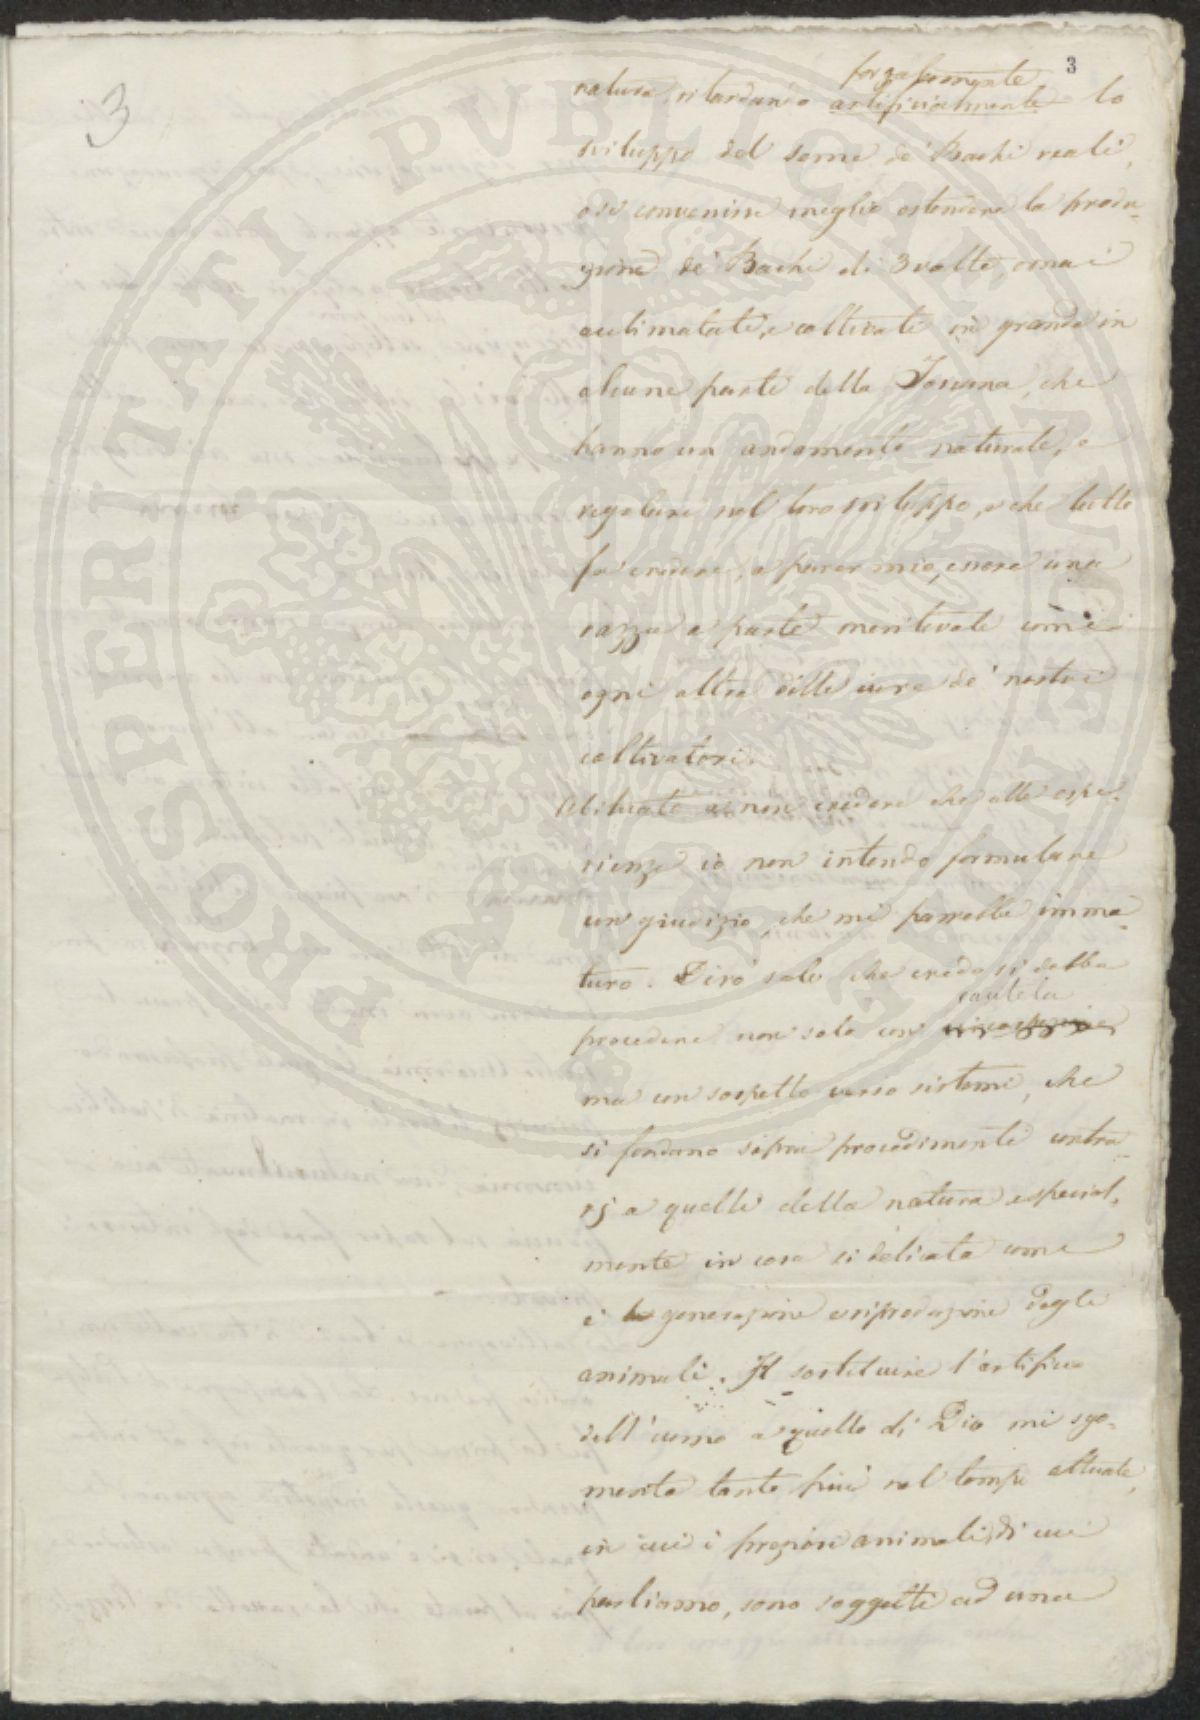 3
3
forzatamente
natura, ritardando artificiosamente lo
sviluppo del seme de' Bachi reali,
o se convenisse meglio estendere la produ-
zione de' Bachi di 3 volte, omai
acclimatati, e coltivati in grande in
alcune parti della Toscana, che
hanno un andamento naturale, e
regolare nel loro sviluppo, e che tutto
fa credere, a parer mio, essere una
razza a parte meritevole come
ogni altra delle cure de' nostri
coltivatori.
Abituato a non credere che alle espe-
rienze io non intendo formulare
un giudizio, che mi parrebbe imma-
turo. Dirò solo che credo si debba
cautela
procedere non solo con
ma con sospetto verso sistemi, che
si fondano sopra procedimenti contra-
rj a quelli della natura especial-
mente in cosa sì delicata come
è la generazione e riproduzione degli
animali. Il sostituire l'artificio
dell'uomo a quello di Dio mi sgo-
menta tanto più nel tempo attuale,
in cui i preziosi animali, di cui
parliamo, sono soggetti ad una
PROSPERITATI PVBLICAE AVGENDAE